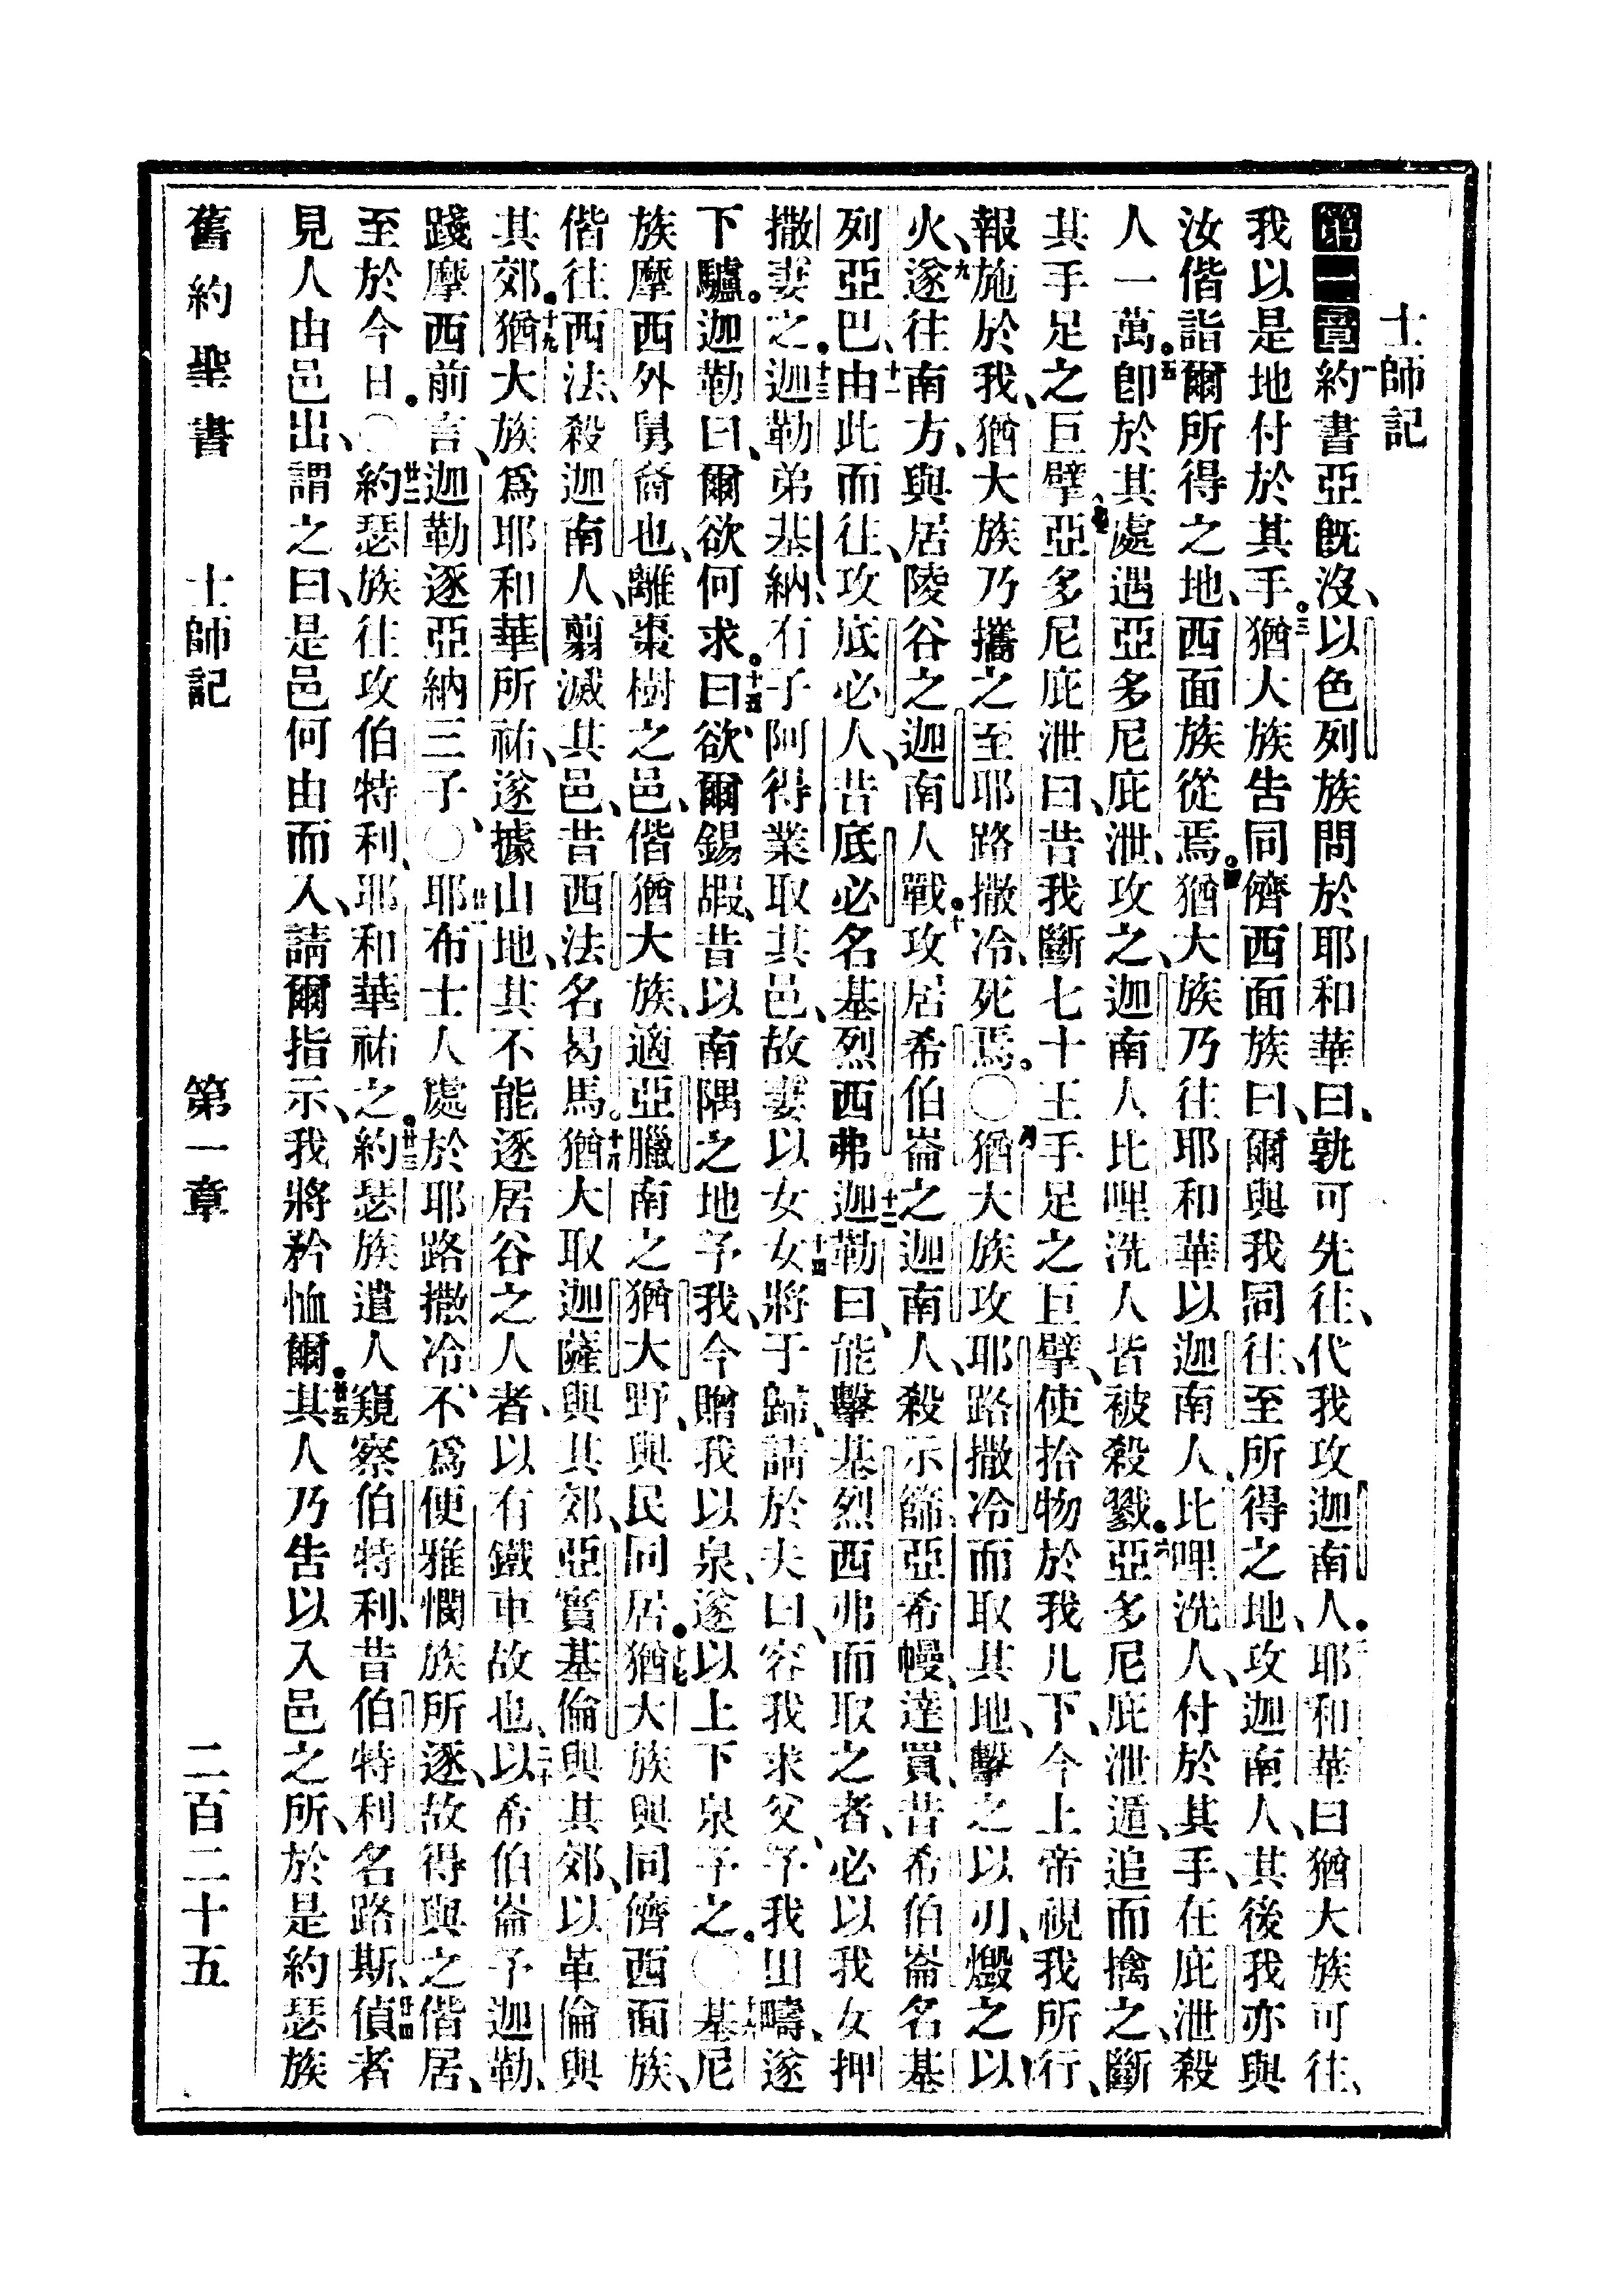 士師記
第一章一約書亞旣沒、以色列族問於耶和華曰、孰可先往、代我攻迦南人。耶和華曰猶大族可往、
我以是地付於其手。三猶大族告同儕西面族曰、爾與我同往、至所得之地、攻迦南人、其後我亦與
汝偕詣爾所得之地、西面族從焉。四猶大族乃往耶和華以迦南人、比哩洗人、付於其手、在庇泄殺
人一萬。五卽於其處遇亞多尼庇泄、攻之、迦南人比哩洗人皆被殺戮。六亞多尼庇泄遁、追而擒之、斷
其手足之巨擘。七亞多尼庇泄曰、昔我斷七十王手足之巨擘、使拾物於我几下、今上帝視我所行、
報施於我、猶大族乃攜之至耶路撒冷、死焉。〇八猶大族攻耶路撒冷而取其地、擊之以刃、燬之以
火、九遂往南方、與居陵谷之迦南人戰。十攻居希伯崙之迦南人、殺示篩、亞希幔、達買、昔希伯崙名基
列亞巴、十一由此而往、攻底必人、昔底必名基烈西弗。十二迦勒曰、能擊基烈西弗、而取之者、必以我女押
撒妻之。十三迦勒弟基納、有子阿得業取其邑、故妻以女。十四女將于歸、請於夫曰、容我求父、予我田疇、遂
下驢。迦勒曰、爾欲何求。十五曰、欲爾錫嘏、昔以南隅之地予我、今贈我以泉、遂以上下泉予之。〇十六基尼
族摩西外舅裔也、離棗樹之邑、偕猶大族、適亞臘南之猶大野、與民同居。十七猶大族與同儕西面族、
偕往西法、殺迦南人、翦滅其邑、昔西法名曷馬。十八猶大取迦薩與其郊、亞實基倫與其郊、以革倫與
其郊。十九猶大族、爲耶和華所祐、遂據山地、其不能逐居谷之人者、以有鐵車故也、二十以希伯崙予迦勒、
踐摩西前言、迦勒逐亞納三子、〇廿一耶布士人處於耶路撒冷、不爲便雅憫族所逐、故得與之偕居、
至於今日。〇廿二約瑟族往攻伯特利、耶和華祐之。廿三約瑟族遣人窺察伯特利、昔伯特利名路斯、廿四偵者
見人由邑出、謂之曰、是邑何由而入、請爾指示、我將矜恤爾。廿五其人乃告以入邑之所、於是約瑟族
舊約聖書 士師記 第一章 二百二十五